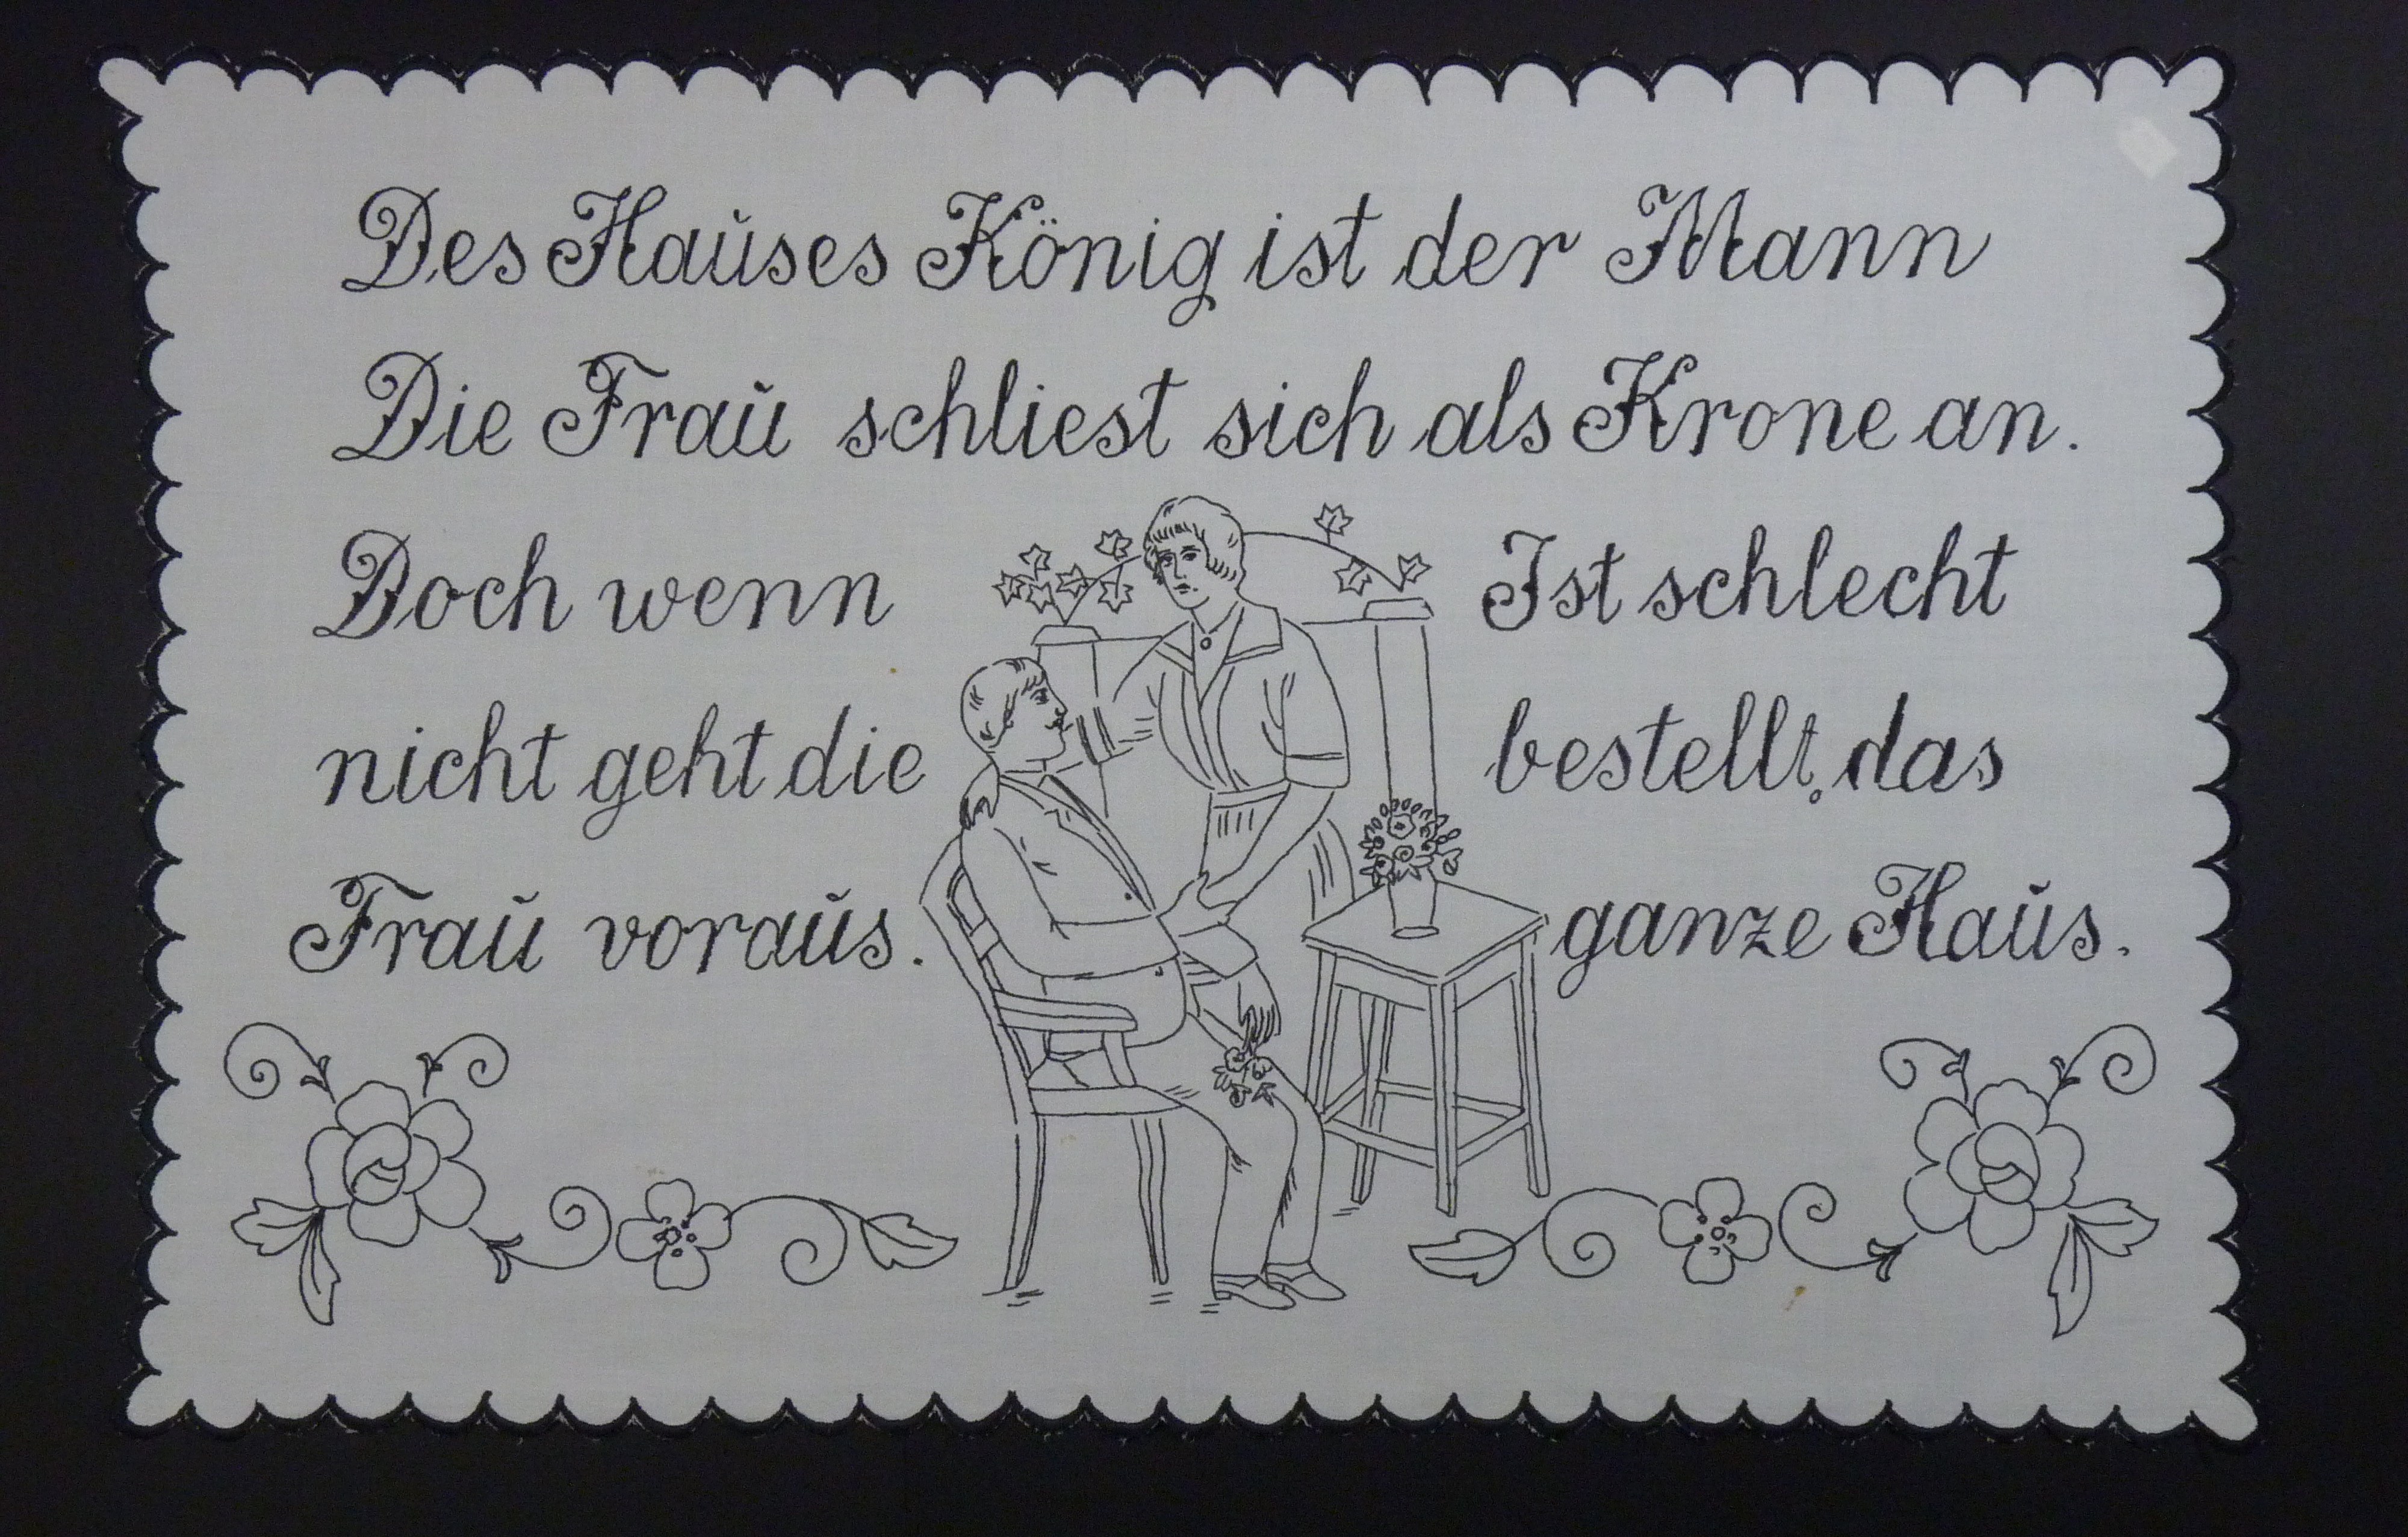 Des Hauses König ist der Mann
Die Frau schliest sich als Krone an.
Doch wenn
nicht geht die
Frau voraus.
Ist schlecht
bestellt das
ganze Haus.